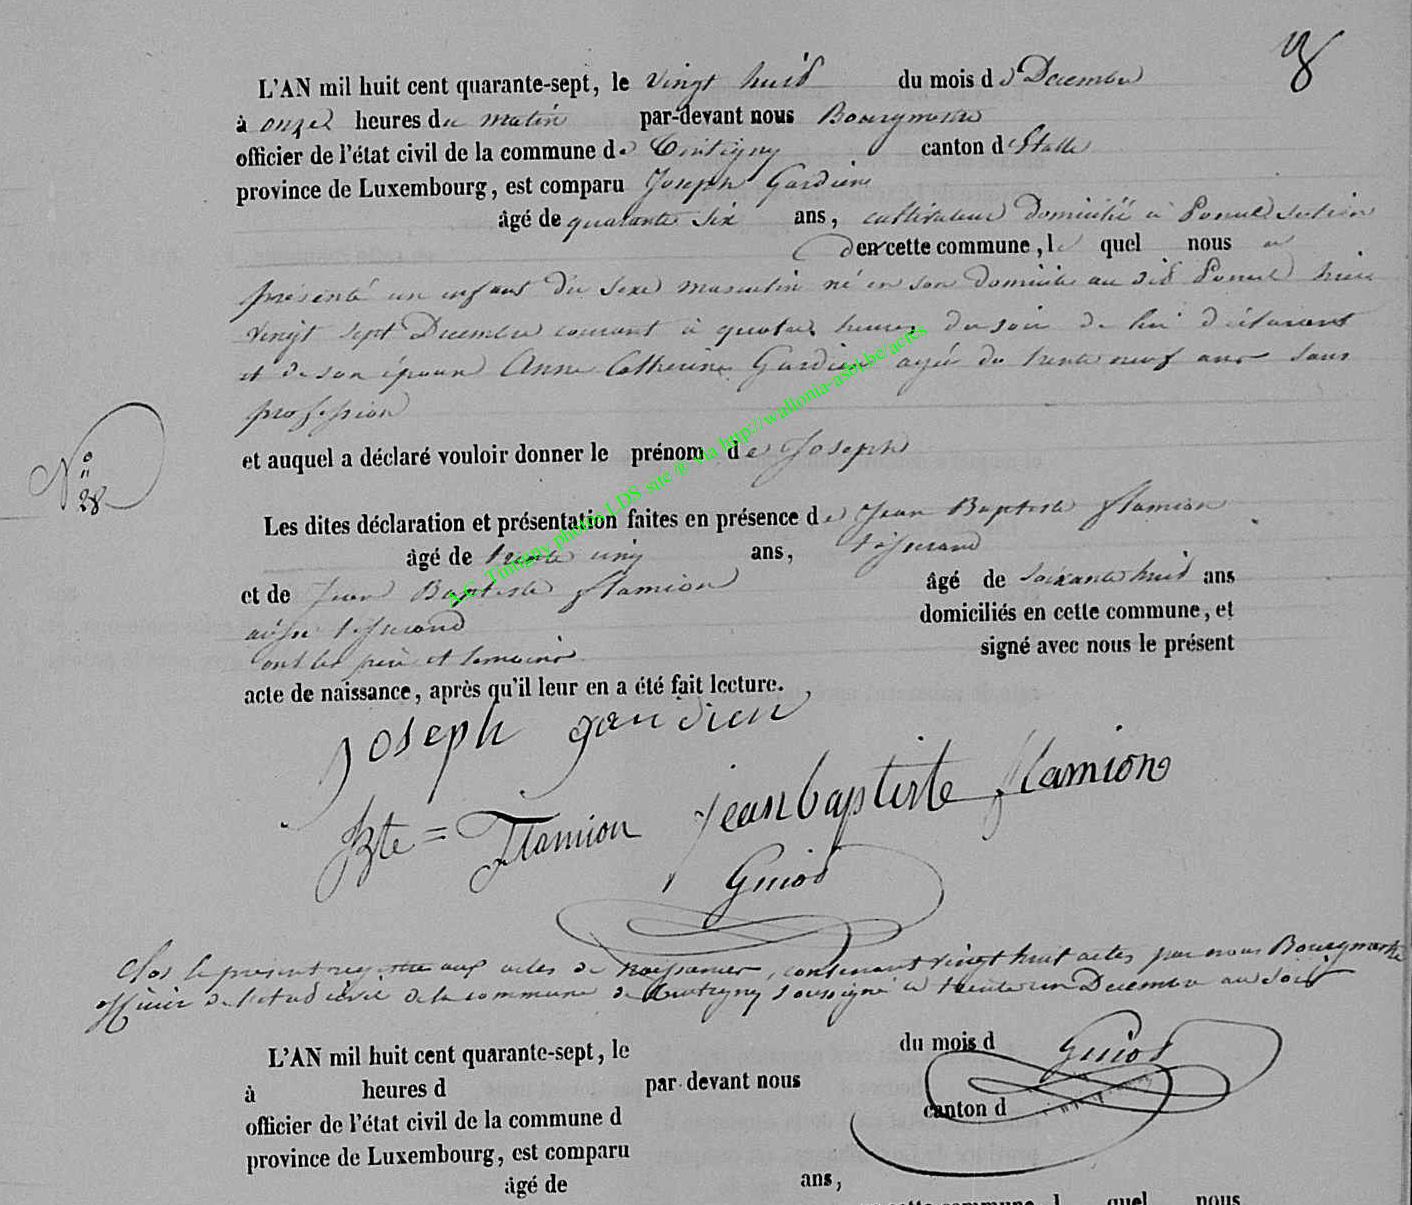 8
L'AN mil huit cent quarante-sept, le vingt huit du mois de Decembre
à onze heures du matin par-devant nous Bourgmestre
officier de l'état civil de la commune de Tintigny canton d'Etalle
province de Luxembourg, est comparu Joseph Gardien
âgé de quarante six ans, cultivateur domicilié à section
de cette commune, lequel nous a
présenté un enfant du sexe masculin né en son domicile au dit hier
vingt sept Decembre courant à quatre heures du soir de lui déclarant
et de son épouse Anne Catherine Gardien agée de trente neuf ans sans
profession
et auquel a déclaré vouloir donner le prénom de Joseph
N° 28
Les dites déclaration et présentation faites en présence de Jean Baptiste flamion
âgé de trente cinq ans, tisserand
et de Jean Baptiste flamion âgé de soixante huit ans
aussi tisserand domiciliés en cette commune, et
ont les père et temoins signé avec nous le présent
acte de naissance, après qu'il leur en a été fait lecture.
joseph gardien
JBte = Flamion jean baptiste flamion
Guiot
Clos le présent registre aux actes de naissances, contenant vingt huit actes par nous Bourgmestre
officier de l'etat civil de la commune de Tintigny soussigné le trente un Decembre au soir
Guiot
L'AN mil huit cent quarante-sept, le du mois d
à heures d par-devant nous
officier de l'état civil de la commune d canton d
province de Luxembourg, est comparu
âgé de ans,
cette commune, l quel nous
A.C. Tintigny photos LDS site @ via http://wallonia-asbl.be/actes